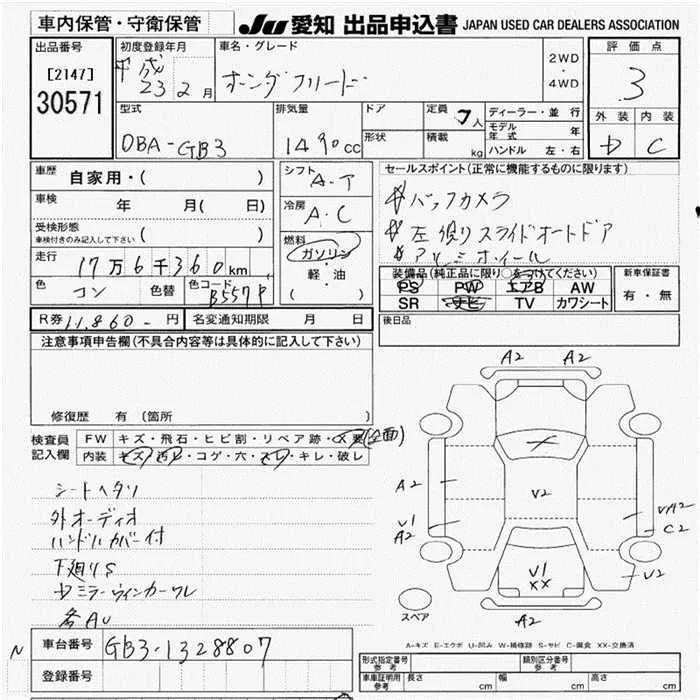 車内保管・守衛保管
JU 愛知 出品申込書 JAPAN USED CAR DEALERS ASSOCIATION
出品番号
[2147]
30571
初度登録年月
平成
23 2月
車名・グレード
ホンダフリード
2WD
・
4WD
評価点
3
外装 内装
D C
型式
DBA-GB3
排気量
1490cc
ドア
形状
定員 7人
積載 kg
ディーラー・並行
モデル年式 年
ハンドル 左・右
車歴 自家用・( )
車検 年 月( 日)
受検形態
車検付きのみ記入して下さい ( )
走行 17万6千360km
色 コン 色替 色コード B557P
シフト
A-T
冷房
A・C
燃料
ガソリン
・
軽・油
( )
セールスポイント(正常に機能するものに限ります)
バックカメラ
左側スライドオートドア
アルミホイール
装備品(純正品に限り○をつけてください)
PS PW エアB AW
SR ナビ TV カワシート
新車保証書
有・無
R券 11,860- 円 名変通知期限 月 日
後日品
注意事項申告欄(不具合内容等は具体的に記入して下さい)
修復歴 有(箇所 )
検査員
記入欄
FW キズ・飛石・ヒビ割・リペア跡・X要(全面)
内装 キズ・汚レ・コゲ・穴・スレ・キレ・破レ
シートヘタリ
外オーディオ
ハンドルカバー付
下廻りS
Dミラーウィンカーワレ
各AU
A2 A2
A2
V1
A2
V2
V1
XX
VA2
C2
V2
A2
スペア
A-キズ E-エクボ U-凹み W-補修跡 S-サビ C-腐食 XX-交換済
N
車台番号 GB3-1328807
登録番号
形式指定番号
参考
類別区分番号
参考
車庫証明用
参考
長さ cm 幅 cm 高さ cm